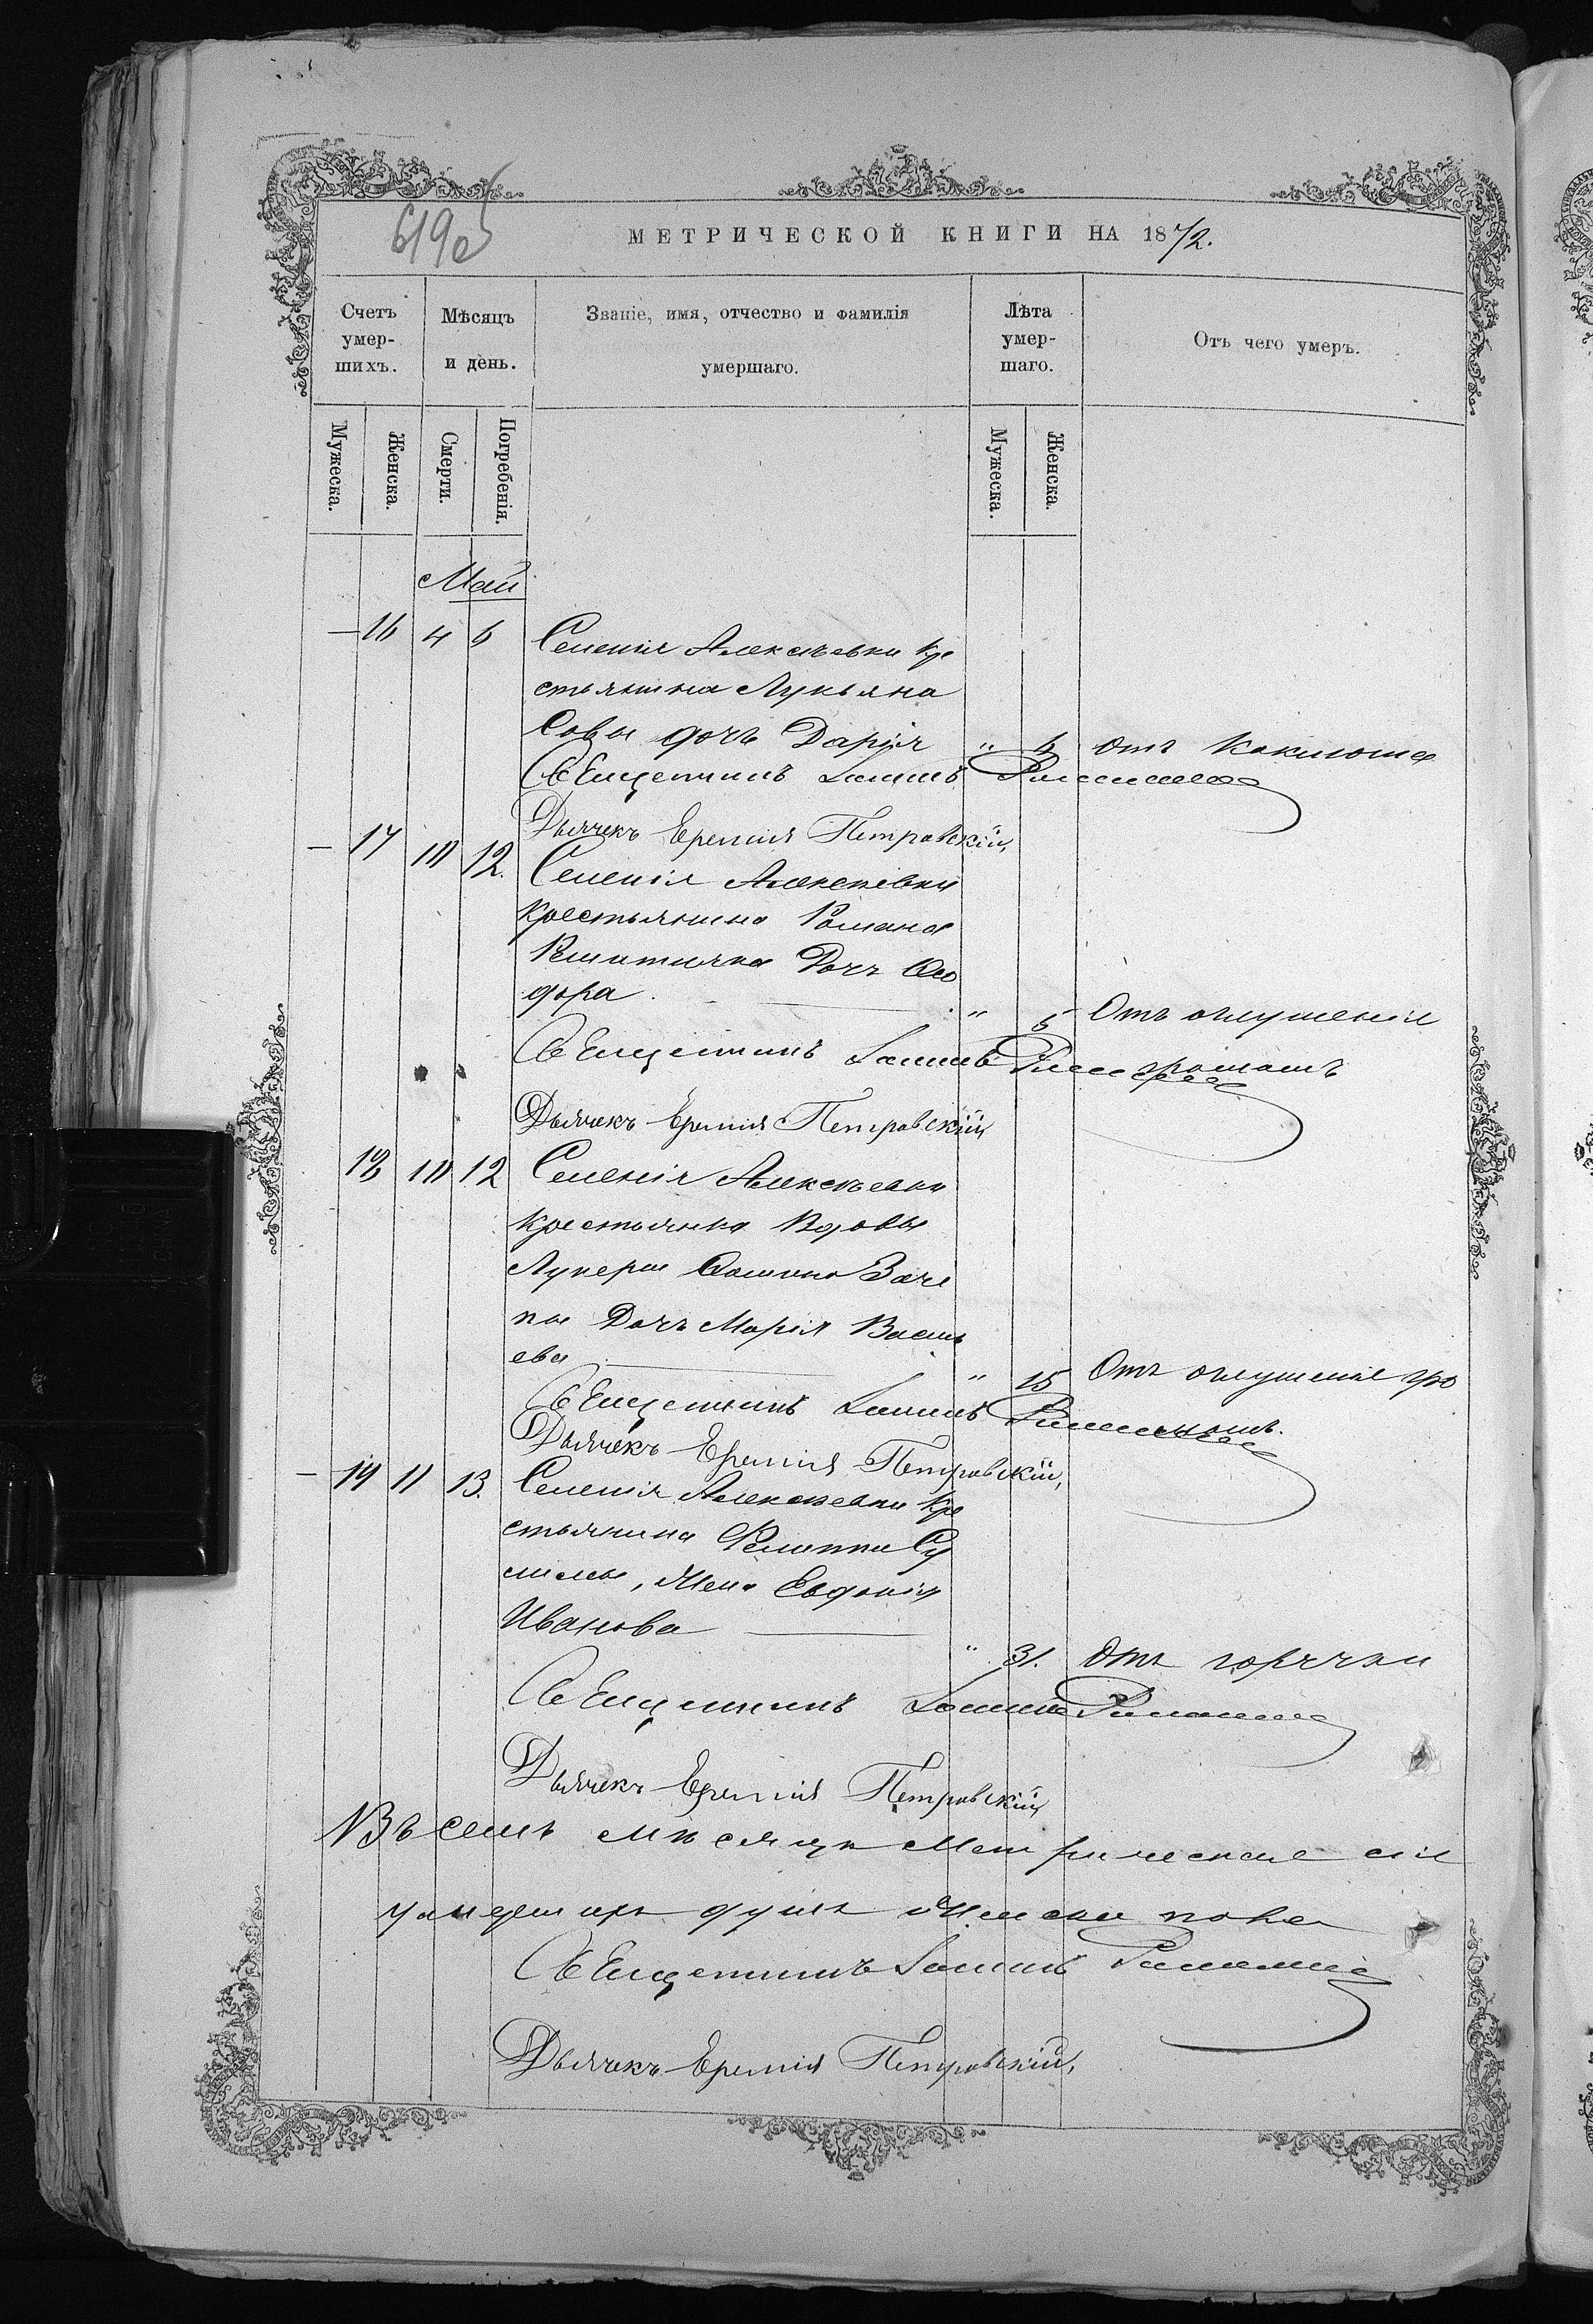 619об
МЕТРИЧЕСКОЙ КНИГИ НА 1872.
Счетъ умер-шихъ.
Мѣсяцъ и день.
Званіе, имя, отчество и фамилія умершаго.
Лѣта умер-шаго.
Отъ чего умеръ.
Мужеска.
Женска.
Смерти.
Погребенія.
Мужеска.
Женска.
Май
— 16 4 6 Селенія Алексѣевки Кре
стьянина Лукьяна
Совы дочь Дарія " 6 Отъ Коклюша
Священникъ Іоаннъ
Дьячекъ Еремія Петровскій,
— 17 10 12. Селенія Алексѣевки
Крестьянина Романа
Решитика Дочь Ѳео
дора. " 5 Отъ оглушенія
Священникъ Іоаннъ громомъ
Дьячекъ Еремія Петровскій
18 10 12 Селенія Алексѣевки
Крестьянки Вдовы
Лукеріи Заче
пы Дочь Марія Василь
ева " 15 Отъ оглушенія гро
Священникъ Іоаннъ момъ.
Дьячекъ Еремія Петровскій,
— 19 11 13. Селенія Алексѣевки Кре
стьянина Филиппа Су
лимы, Жена Евдокія
Иванова " 31. Отъ горячки
Священникъ Іоаннъ
Дьячекъ Еремія Петровскій
Въ семъ мѣсяцѣ Метрическіе сіи
умершихъ душъ Женска пола
Священникъ Іоаннъ
Дьячекъ Еремія Петровскій,